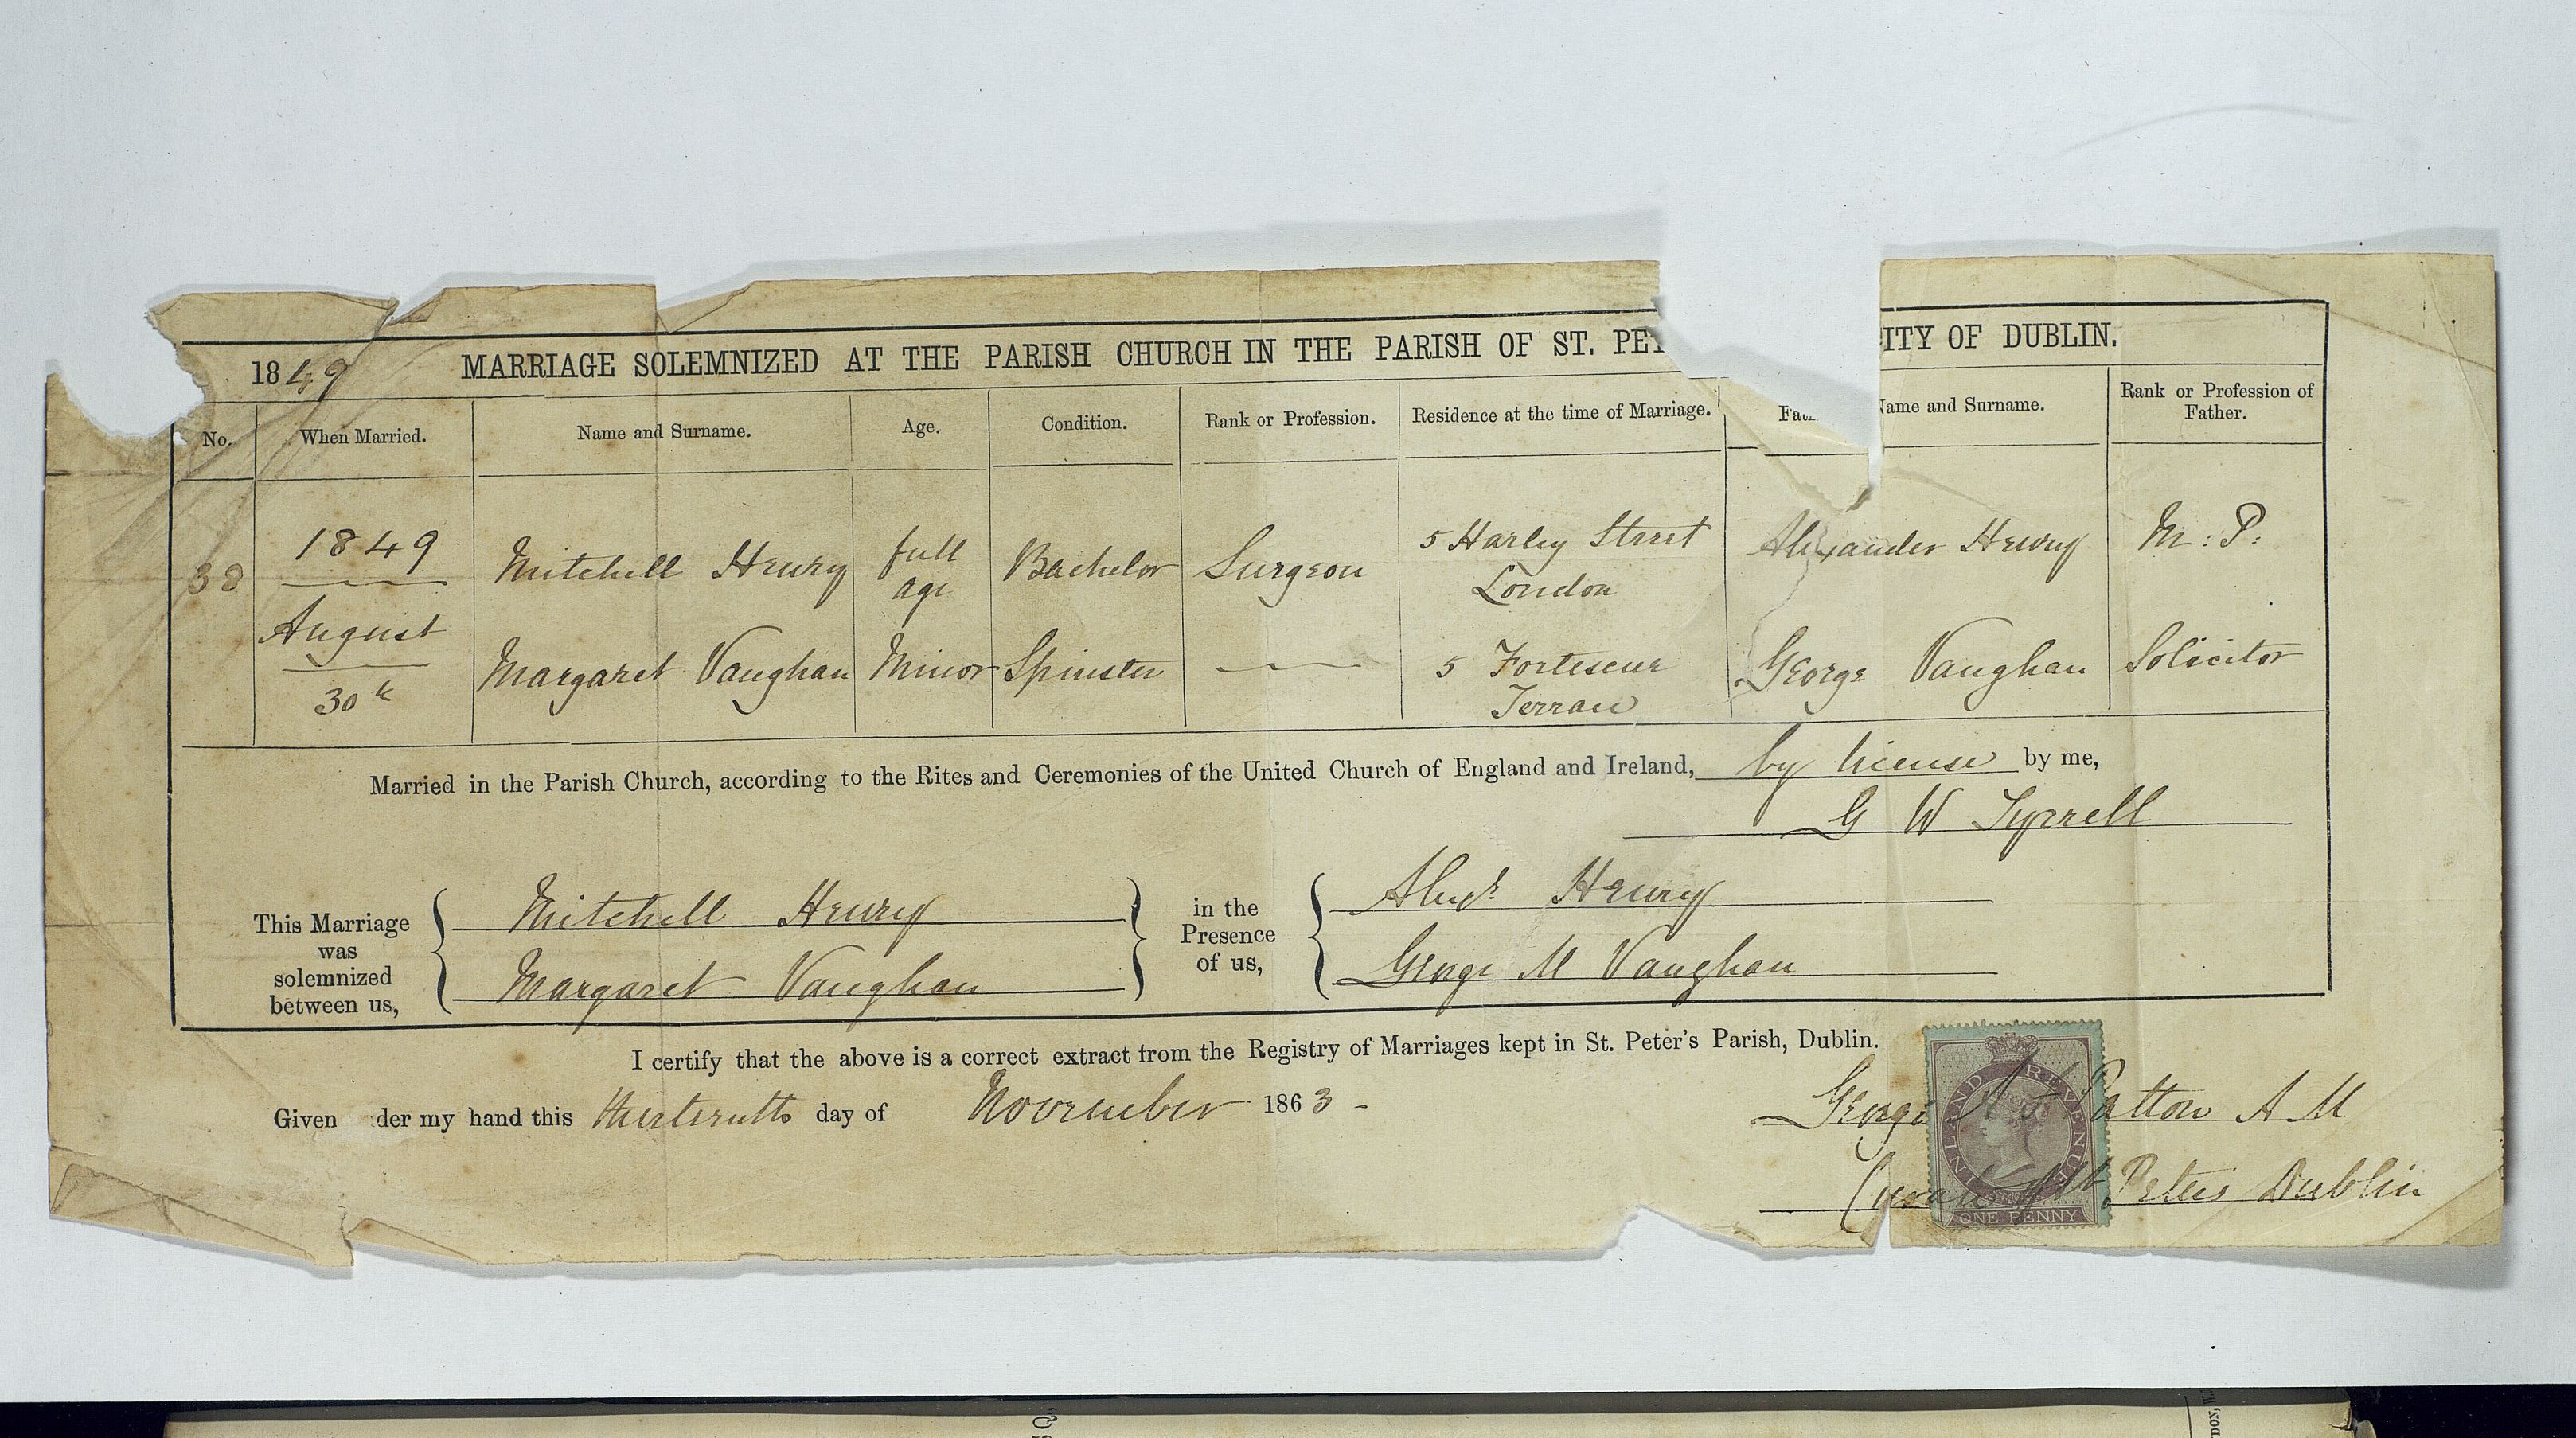 1849 MARRIAGE SOLEMNIZED AT THE PARISH CHURCH IN THE PARISH OF ST. PET ITY OF DUBLIN.
No. When Married. Name and Surname. Age. Condition. Rank or Profession. Residence at the time of Marriage. Fat Name and Surname. Rank or Profession of Father.
38 1849 August 30th
Mitchell Henry full age Bachelor Surgeon 5 Harley Street London Alexander Henry M:P:
Margaret Vaughan Minor Spinster 5 Fortescue Terrace George Vaughan Solicitor
Married in the Parish Church, according to the Rites and Ceremonies of the United Church of England and Ireland, by license by me,
G W Tyrrell
This Marriage was solemnized between us,
Mitchell Henry
Margaret Vaughan
in the Presence of us,
Alexr Henry
George M Vaughan
I certify that the above is a correct extract from the Registry of Marriages kept in St. Peter's Parish, Dublin.
Given der my hand this day of November 1863 -
George Patton A M
Curate of St Peters Dublin
INLAND REVENUE
ONE PENNY